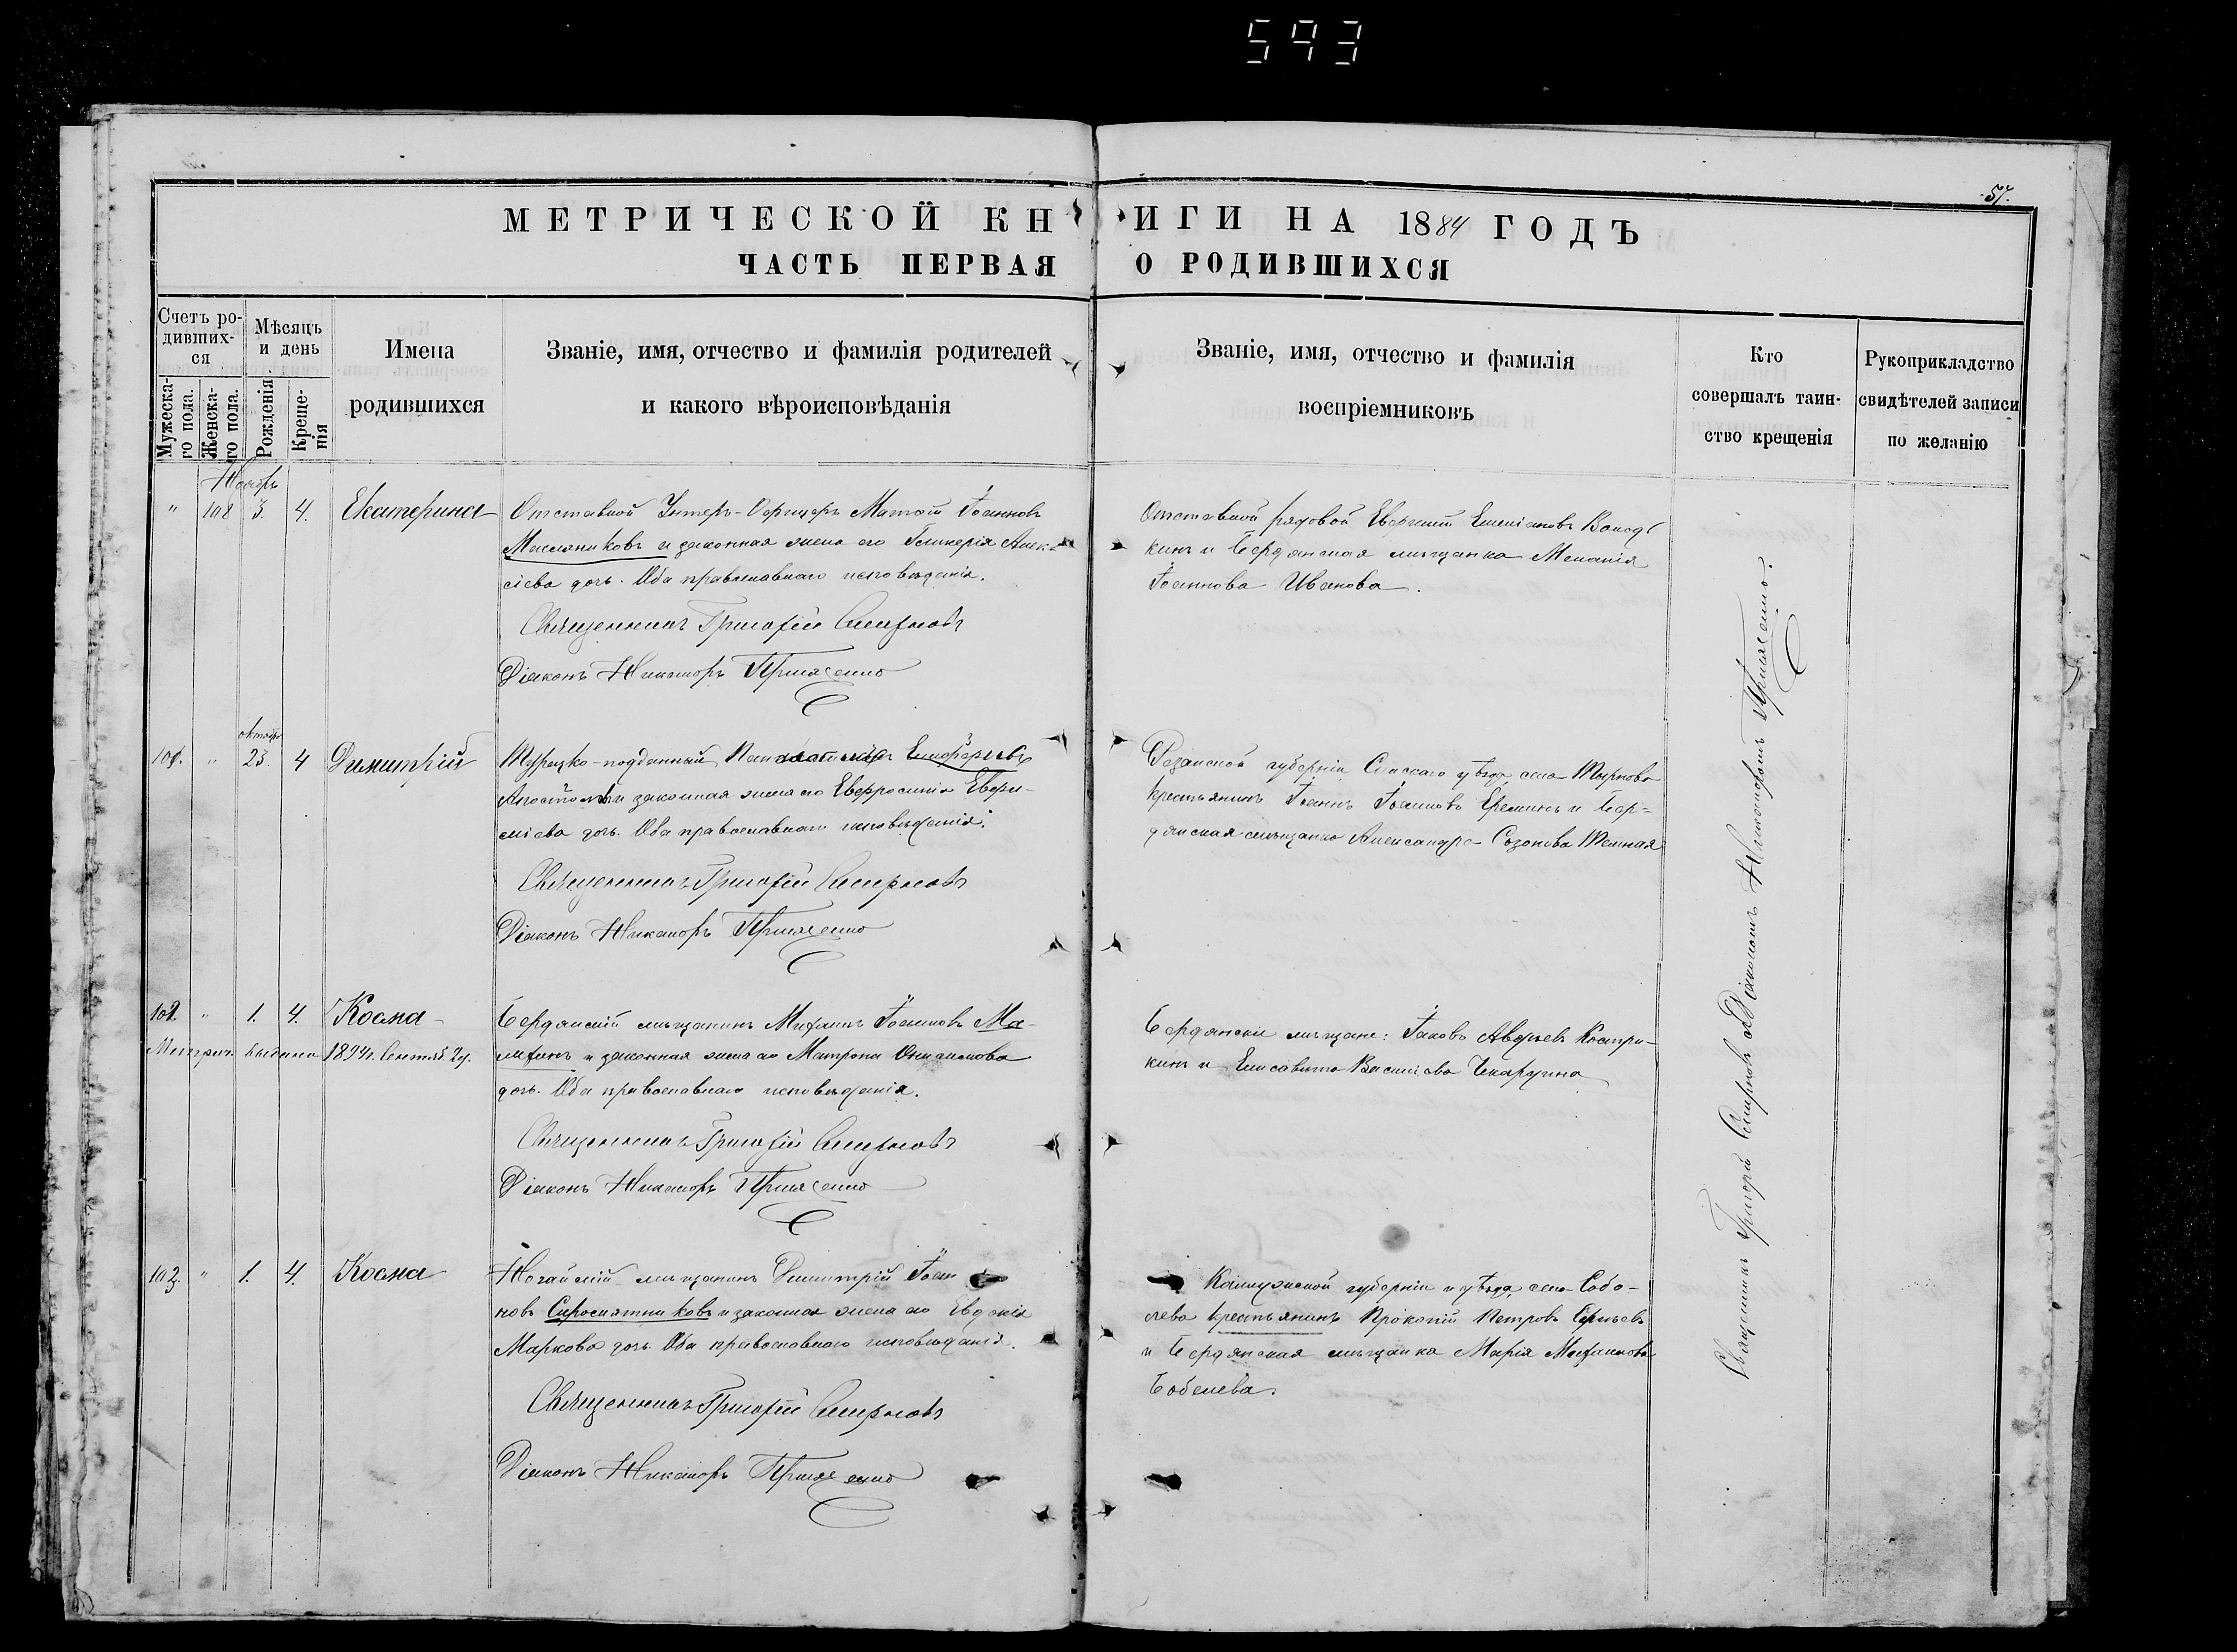 593
57.
МЕТРИЧЕСКОЙ КНИГИ НА 1884 ГОДЪ
ЧАСТЬ ПЕРВАЯ О РОДИВШИХСЯ
Счетъ ро-
дивших-
ся
Мужеска-
го пола.
Женска-
го пола.
Мѣсяцъ
и день
Рожденія
Креще-
нія
Имена
родившихся
Званіе, имя, отчество и фамилія родителей
и какого вѣроисповѣданія
Званіе, имя, отчество и фамилія
воспріемниковъ
Кто
совершалъ таин-
ство крещенія
Рукоприкладство
свидѣтелей записи
по желанію
Ноябрь
" 108 3. 4. Екатерина
Отставной Унтеръ-Офицеръ Матѳій Іоанновъ
Масляниковъ и законная жена его Гликерія Алек-
сіева дочь. Оба православнаго исповѣданія.
Священникъ Григорій Смирновъ
Діаконъ Никаноръ
Отставной рядовой Евфимій
кинъ и Бердянская мѣщанка Меланія
Іоаннова Иванова.
октябрь
101. " 23. 4 Димитрій
Турецко-подданный
и законная жена его Евфросинія Евфи-
міева дочь. Оба православнаго исповѣданія.
Священникъ Григорій Смирновъ
Діаконъ Никаноръ
Рязанской губерніи Спаскаго уѣзда села
крестьянинъ Іоаннъ Іоанновъ Ереминъ и Бер-
дянская мѣщанка Александра Созонова Темная
102. " 1. 4. Косма
Метрич. выдана 1894г. Сентяб. 24.
Бердянскій мѣщанинъ Михаилъ Іоанновъ Ма-
и законная жена его Матрона Онисимова
дочь. Оба православнаго исповѣданія.
Священникъ Григорій Смирновъ
Діаконъ Никаноръ
Бердянскіе мѣщане: Іаковъ Костри-
кинъ и Елисавета Василіева
103. " 1. 4. Косма
Ногайскій мѣщанинъ Димитрій Іоан-
новъ Сыромятниковъ и законная жена его Евдокія
Маркова дочь. Оба православнаго исповѣданія.
Священникъ Григорій Смирновъ
Діаконъ Никаноръ
Калужской губерніи и уѣзда, села Собо-
лева крестьянинъ Прокопій Петровъ
и Бердянская мѣщанка Марія Михаилова
Бобелева.
Священникъ Григорій Смирновъ съ Діакономъ Никаноромъ